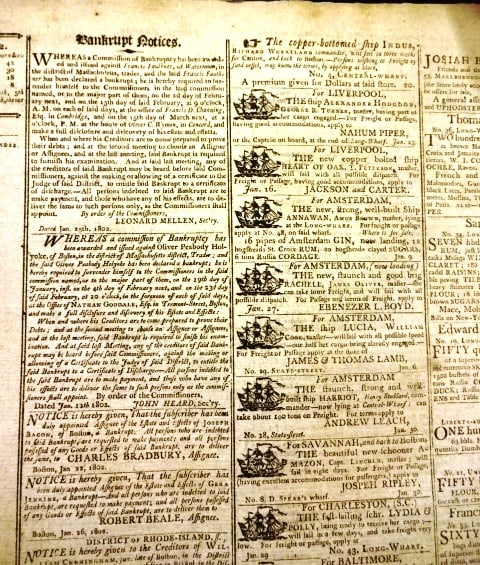 Bankrupt Notices.
WHEREAS a Commission of Bankruptcy has been award-
ed and issued against Francis Faulkner, of Watertown, in
the district of Massachusetts, trader, and the said Francis Faulk-
ner has been declared a bankrupt; he is hereby required to sur-
render himself to the Commissioners in the said commission
named, or to the major part of them, on the 2d day of Febru-
ary next, and on the 15th day of said February, at 9 o'clock,
A. M. on each of said days, at the office of Francis D. Channing,
Esq. in Cambridge, and on the 15th day of March next, at 2
o'clock, P. M. at the house of in Concord, and
make a full disclosure and discovery of his estate and effects.
When and where his Creditors are to come prepared to prove
their debts; and at the second meeting to choose an Assignee
or Assignees, and at the last meeting, said Bankrupt is required
to furnish his examination. And at said last meeting, any of
the creditors of said Bankrupt may be heard before said Com-
missioners, against the making or allowing of a certificate to the
Judge of said District, to entitle said Bankrupt to a certificate
of discharge.—All persons indebted to said Bankrupt are to
make payment, and those who have any of his effects, are to de-
liver the same to such persons only as the Commissioners shall
appoint. By order of the Commissioners,
LEONARD MELLEN, Sec'ry.
Dated Jan. 25th, 1802.
WHEREAS a commission of Bankruptcy has
been awarded and issued against Oliver Peabody Ho-
lyoke, of Boston, in the district of Massachusetts district, Trader; and
the said Oliver Peabody Holyoke has been declared a bankrupt, he is
hereby required to surrender himself to the Commissioners in the said
commission named, or to the major part of them, on the 19th day of
January, inst. on the 4th day of February next, and on the 23d day
of said February, at 10 o'clock, in the forenoon of each of said days,
at the Office of NATHAN GOODALE, Esq. in Tremont-Street, Boston,
and make a full disclosure and discovery of his Estate and Effects:
When and where his Creditors are to come prepared to prove their
Debts; and at the second meeting to choose an Assignee or Assignees,
and at the last meeting, said Bankrupt is required to finish his exam-
ination. And at said last Meeting, any of the creditors of said Bank-
rupt may be heard before said Commissioners, against the making or
allowing of a Certificate to the Judge of said District, to entitle the
said Bankrupt to a Certificate of Discharge—All persons indebted to
the said Bankrupt are to make payment, and those who have any of
his effects are to deliver the same to such persons only as the commis-
sioners shall appoint. By order of the commissioners.
Dated Jan. 12th 1802. JOHN HEARD, Sec'ry.
NOTICE is hereby given, That the subscriber has been
duly appointed Assignee of the Estate and Effects of JOSEPH
BACON, of Boston, a Bankrupt. All persons who are indebted
to said Bankrupt, are requested to make payment; and all persons
possessed of any Goods or Effects of said Bankrupt, are to deliver
the same, to CHARLES BRADBURY, Assignee.
Boston, Jan. 22, 1802.
NOTICE is hereby given, That the subscriber has
been duly appointed Assignee of the Estate and Effects of GERA
JENKINS, a Bankrupt.—And all persons who are indebted to said
Bankrupt, are requested to make payment, and all persons possessed
of any Goods or Effects of said Bankrupt, are to deliver them to
ROBERT BEALE, Assignee.
Boston, Jan. 26, 1802.
DISTRICT OF RHODE-ISLAND,
NOTICE is hereby given to the Creditors of WIL-
LIAM CUNNINGHAM, jun. late of Boston, in the District
The copper-bottomed ship INDUS,
RICHARD WHEATLAND commander, will sail in three weeks
for Canton, and back to Boston.—Persons wishing to Freight by
said ship, may know the terms, by applying at Store,
No. 4, CENTRAL-WHARF.
A premium given for Dollars at said store. 20.
For LIVERPOOL,
THE ship ALEXANDER HODGDON,
GEORGE R. TURNER, master, having part of
her cargo engaged.—For Freight or Passage,
having good accommodations, apply to
NAHUM PIPER,
or the Captain on board, at the end of Long-Wharf. Jan. 23.
For LIVERPOOL,
THE new copper bolted ship
HEART OF OAK, T. PETERSON, master,
will sail with all possible dispatch. For
Freight or Passage, having good accommodations, apply to
Jan. 16. JACKSON and CARTER.
For AMSTERDAM,
THE new, strong, well-built Ship
ANNAWAN, Amos Brown, master, lying
at the end of Long-Wharf. For Freight or Passage
apply at No. 48, on said wharf. Where is for sale,
16 pipes of Amsterdam GIN, now landing, 12
hogsheads St. Croix RUM, 20 hogsheads clayed SUGARS,
6 tons Russia CORDAGE. Jan. 16.
For AMSTERDAM, (now loading)
THE new, staunch and good brig
RACHEL, JAMES OLIVER, master—she
can take some Freight, and will sail with all
possible dispatch. For Passage and terms of Freight, apply to
Jan. 27. EBENEZER L. BOYD.
For AMSTERDAM,
THE ship LUCIA, WILLIAM
COOK, master—will sail with all possible speed
—one half her cargo being already engaged.—
For Freight or Passage apply at the store of
JAMES & THOMAS LAMB,
No. 19, STATE-STREET. Jan. 6.
For AMSTERDAM
THE staunch, strong and well-
built ship HARRIOT, Henry Stoddard, com-
mander—now lying at May's Wharf, can
take about 100 tons on Freight. For terms apply to
ANDREW LEACH,
No. 28, State-street. Jan. 30.
For SAVANNAH, and back to Boston
THE beautiful new schooner A-
MAZON, Capt. LUNNICE, master, will
sail in eight days. For Freight or Passage,
(having excellent accommodations for passengers,) apply to
JOSEPH RIPLEY,
No. 8, D. SPEAR's wharf. Jan. 30.
For CHARLESTON, (S.C.)
THE fast-sailing schr. LYDIA &
POLLY, being ready to receive her cargo;—
will sail in a few days, and take freight very
low. For freight or passage, apply at
Jan. 29 No. 43, LONG-WHARF.
For BALTIMORE,
JOSIAH
Thomas
Edward
ONE hun